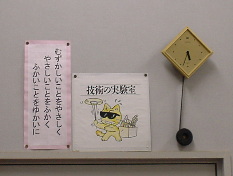 むずかしいことをやさしく
やさしいことをふかく
ふかいことをゆかいに
技術の実験室